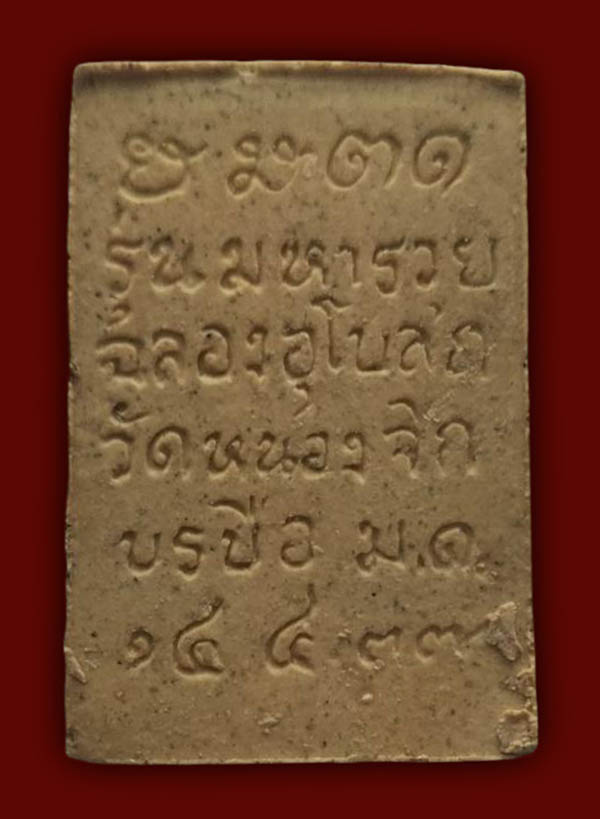 รุ่นมหารวย
ฉลองอุโบสถ
วัดหนองจิก
บรบือ ม.ค.
๑๔ ๔ ๓๗